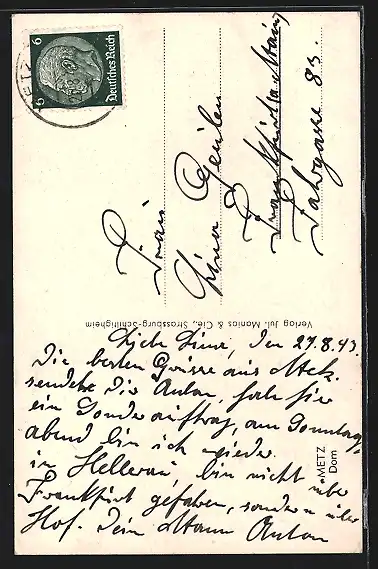 Liebe Lina, den 27.8.43.
Die besten Grüsse aus Metz
sendet Dir Anton, habe hier
ein Sonderauftrag, am Sonntag
abend bin ich wieder
in Hellerau, bin nicht über
Frankfurt gefahren, sondern über
Hof. Dein Mann Anton
Frau
Lina
Frankfurt a/Main
Fahrgasse 83.
Deutsches Reich
6 6
Verlag Jul. Manias & Cie., Strassburg-Schiltigheim
METZ
Dom